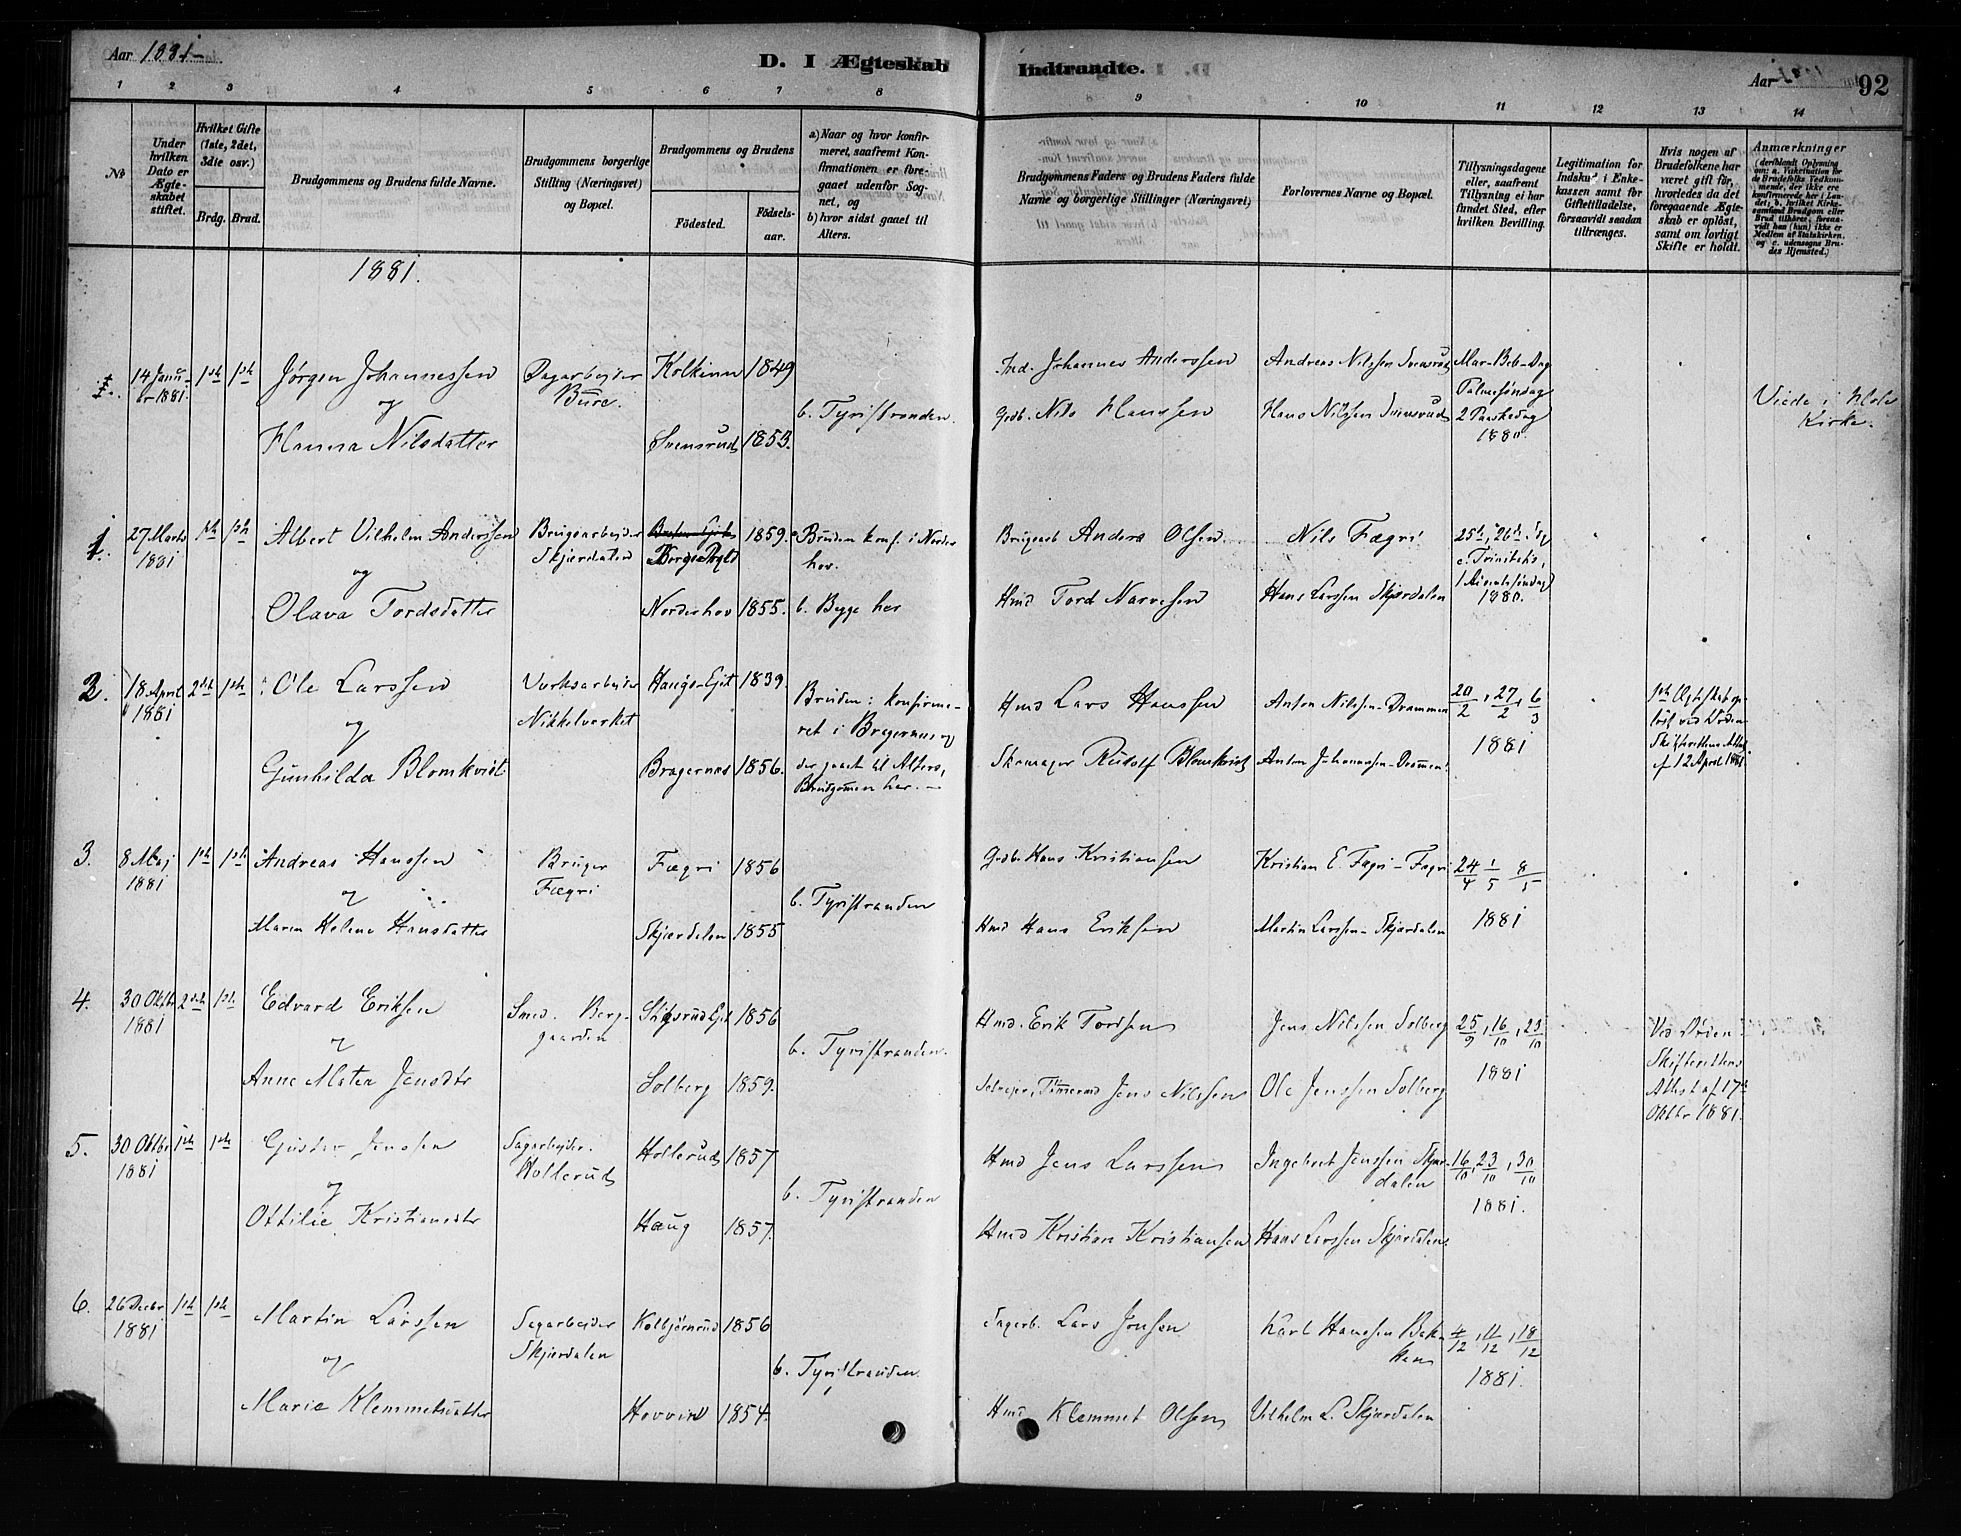 Aar 1881
D. I Ægteskab Indtraadte.
Aar
92
1 2 3 4 5 6 7 8 9 10 11 12 13 14
No
Under hvilken Dato er Ægteskabet stiftet.
Hvilket Gifte (1ste, 2det, 3die osv.)
Brdg. Brud.
Brudgommens og Brudens fulde Navne.
Brudgommens borgerlige Stilling (Næringsvei) og Bopæl.
Brudgommens og Brudens
Födested.
Födselsaar.
a) Naar og hvor konfirmeret, saafremt Konfirmationen er foregaaet udenfor Sognet, og
b) hvor sidst gaaet til Alters.
Brudgommens Faders og Brudens Faders fulde Navne og borgerlige Stillinger (Næringsvei)
Forlovernes Navne og Bopæl.
Tillysningsdagene eller, saafremt Tillysning ei har fundet Sted, efter hvilken Bevilling.
Legitimation for Indskud i Enkekassen samt for Giftetilladelse, forsaavidt saadan tiltrænges.
Hvis nogen af Brudefolkene har været gift før, hvorledes da det foregaaende Ægteskab er opløst, samt om lovligt Skifte er holdt.
Anmærkninger
(deriblandt Oplysning om: a. Vakcination for de Brudefolks Vedkommende, der ikke ere konfirmerede her i Landet; b. hvilket Kirkesamfund Brudgom eller Brud tilhører, forsaavidt han (hun) ikke er Medlem af Statskirken. og c. udensogns Brudes Hjemsted.)
1881.
14 Januar 1881. 1ste 1ste
Jørgen Johannessen
og
Hanna Nilsdatter
Dagarbejder
Bure.
Kolkinn 1849
Svensrud 1853.
b. Tyristranden.
Ind. Johannes Anderssen
Grdb. Nils Hanssen
Andreas Nilssen Svensrud
Hans Nilssen Svensrud
Mar-Beb-Dag
Palmesøndag
2 Paaskedag
1880.
Viede i Hole
Kirke.
1. 27 Marts 1881 1ste 1ste
Albert Vilhelm Anderssen
og
Olava Tordsdatter
Brugsarbejder
Skjærdalen
1859.
Norderhov 1855.
Bruden konf. i Norderhov.
b. Begge her
Brugsarb Anders Olsen
Hmd Tord Narvesen
Nils Fægri
Hans Larssen Skjærdalen
25de, 26de Søg
e. Trinitatis,
1 Adventssøndag
1880.
2. 18 April 1881 2det 1ste
Ole Larssen
og
Gunhilda Blomkvist
Verksarbejder
Nikkelverket
Haugs-Ejet 1839.
Bragernes 1856.
Bruden: konfirmeret i Bragernes og
der gaaet til Alters,
Brudgommen her.
Hmd Lars Hanssen
Skomager Rudolf Blomkvist
Anton Nilssen - Drammen
Anton Johannessen - Drammen
20/2, 27/2, 6/3
1881
1ste Ægteskab opløst ved Døden
Skifterettens Attest
af 12 April 1881.
3. 8 Maj 1881 1ste 1ste
Andreas Hanssen
og
Maren Helene Hansdatter
Bruger
Fægri
Fægri 1856
Skjærdalen 1855
b. Tyristranden
Grdb. Hans Kristiansen
Hmd Hans Eriksen
Kristian E. Fægri - Fægri
Martin Larssen - Skjærdalen
24/4 1/5 8/5
1881
4. 30 Oktbr 1881 2det 1ste
Edvard Eriksen
og
Anne Mathea Jensdtr
Smed. Berggaarden
Stigsrud Ejet 1856
Solberg 1859.
b. Tyristranden.
Hmd. Erik Tordsen
Selvejer, Tømmermd Jens Nilssen
Jens Nilssen Solberg
Ole Jenssen Solberg
25/9, 16/10, 23/10
1881
Ved Døden
Skifterettens
Attest af 17de
Oktbr 1881.
5. 30 Oktbr 1881 1ste 1ste
Gustav Jenssen
og
Ottilie Kristiansdtr
Sagarbejder.
Hollerud
Hollerud 1857
Haug 1857.
b. Tyristranden
Hmd Jens Larssen
Hmd Kristian Kristiansen
Ingebret Jenssen Skjærdalen
Hans Larssen Skjærdalen.
16/10, 23/10, 30/10
1881.
6. 26 Decbr 1881 1ste 1ste
Martin Larssen
og
Marie Klemmetsdatter
Sagarbejder
Skjærdalen
Kolbjørnrud 1856
Hovvin 1854.
b. Tyristranden.
Sagarb. Lars Jonsen
Hmd Klemmet Olsen
Karl Hanssen Bakken
Vilhelm L. Skjærdalen
4/12, 11/12, 18/12
1881.